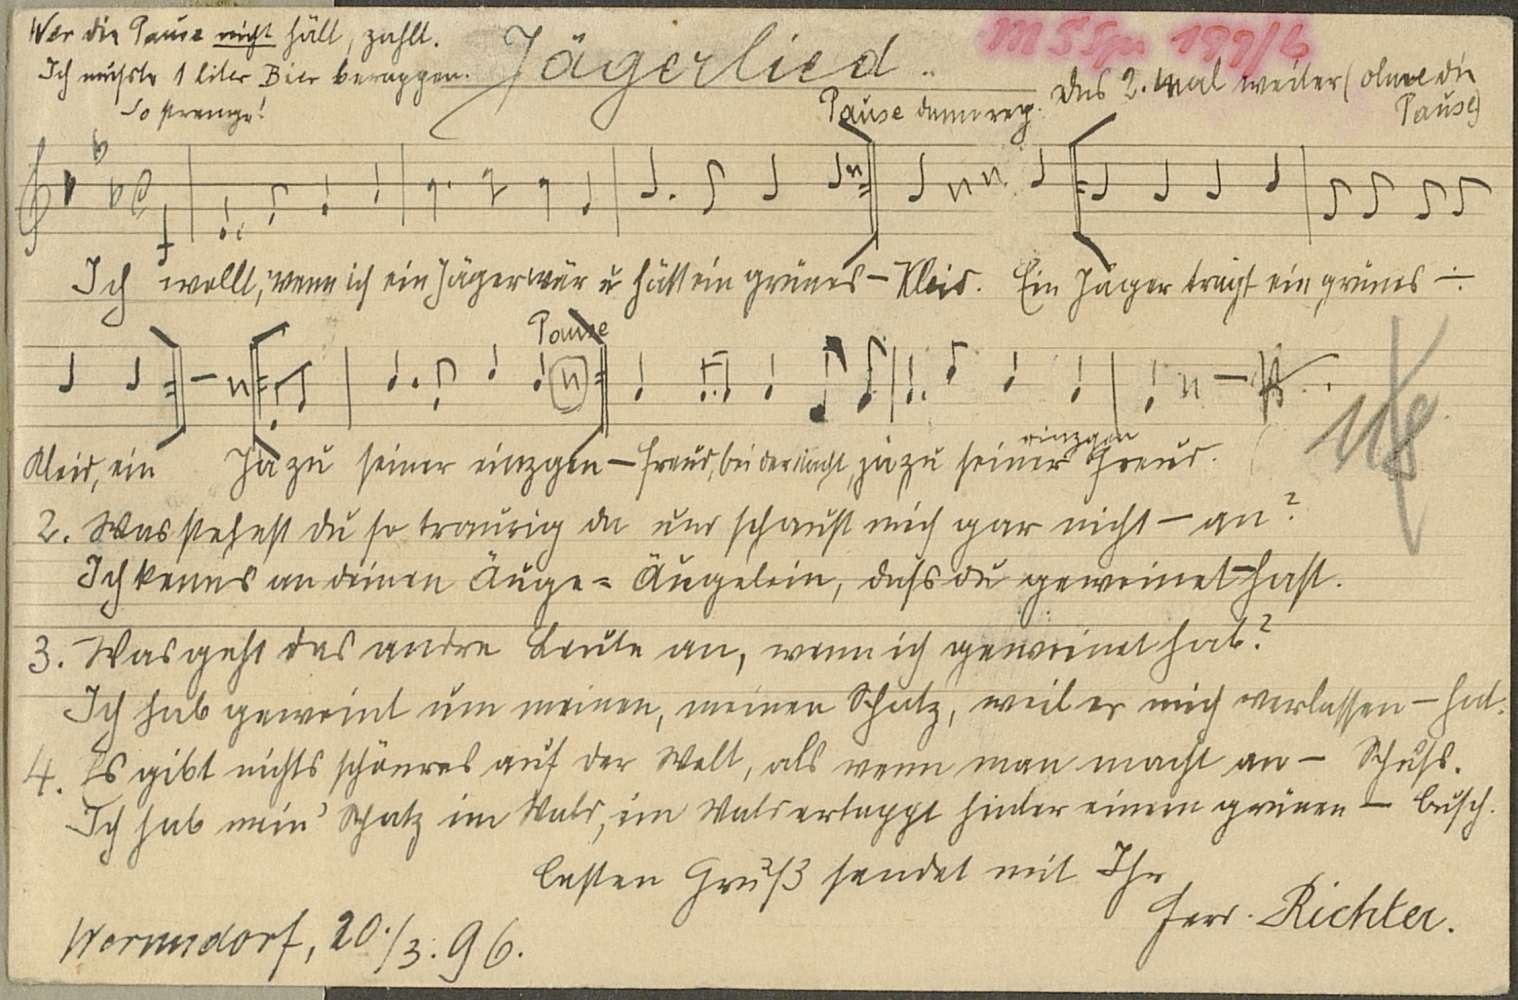 Wer die Pause nicht hält, zahlt.
Ich musste 1 liter Bier berappen.
So strenge!
Jägerlied.
MSSp 199/4
Pause dann rep. Das 2. mal weiter (ohne die
Pause)
Ich wollt, wenn ich ein Jäger wär u hätt ein grünes – Kleid. Ein Jäger trägt ein grünes –
Pause
Kleid, ein Ja zu seiner einzgen – Freud, bei der Nacht, ja zu seiner einzgen Freud.
118
2. Was stehest du so traurig da und schaust mich gar nicht – an?
Ich kenns an deinen Äuge= Äugelein, dass du geweinet – hast.
3. Was geht das andre Leute an, wenn ich geweinet hab?
Ich hab geweint um meinen, meinen Schatz, weil er mich verlassen – hat.
4. Es gibt nichts schönres auf der Welt, als wenn man macht an – Schuss.
Ich hab mein' Schatz im Wald, im Wald ertappt hinter einem grünen – Busch.
Besten Gruß sendet mit Ihr
Ferd. Richter.
Wermsdorf, 20./3. 96.